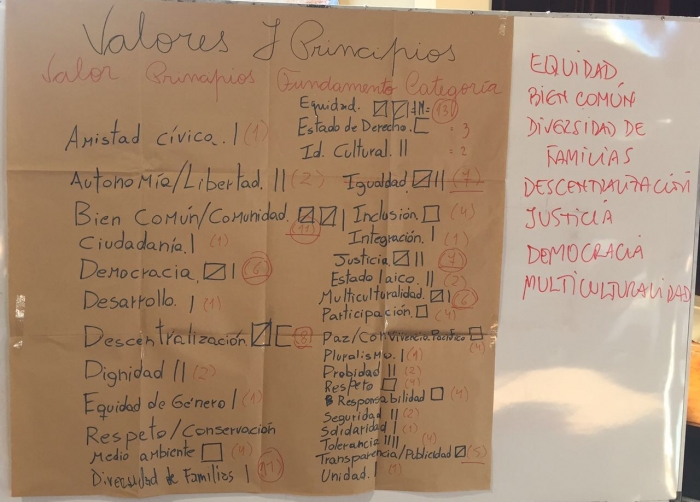 Valores y Principios
Valor Principios Fundamento Categoría
Amistad cívica. (1)
Autonomía/Libertad. (2)
Bien Común/Comunidad. (11)
Ciudadanía. (1)
Democracia. (6)
Desarrollo. (1)
Descentralización (8)
Dignidad (2)
Equidad de Género (1)
Respeto/Conservación
Medio ambiente (4)
Diversidad de Familias
Equidad. (13)
Estado de Derecho. = 3
Id. Cultural. = 2
Igualdad. (7)
Inclusión. (4)
Integración. (1)
Justicia. (7)
Estado laico. (2)
Multiculturalidad. (6)
Participación. (4)
Paz/Convivencia Pacífica (4)
Pluralismo. (1)
Probidad (2)
Respeto (4)
Responsabilidad (4)
Seguridad (2)
Solidaridad (1)
Tolerancia (4)
Transparencia/Publicidad (5)
Unidad. (1)
EQUIDAD
BIEN COMÚN
DIVERSIDAD DE
FAMILIAS
DESCENTRALIZACIÓN
JUSTICIA
DEMOCRACIA
MULTICULTURALIDAD